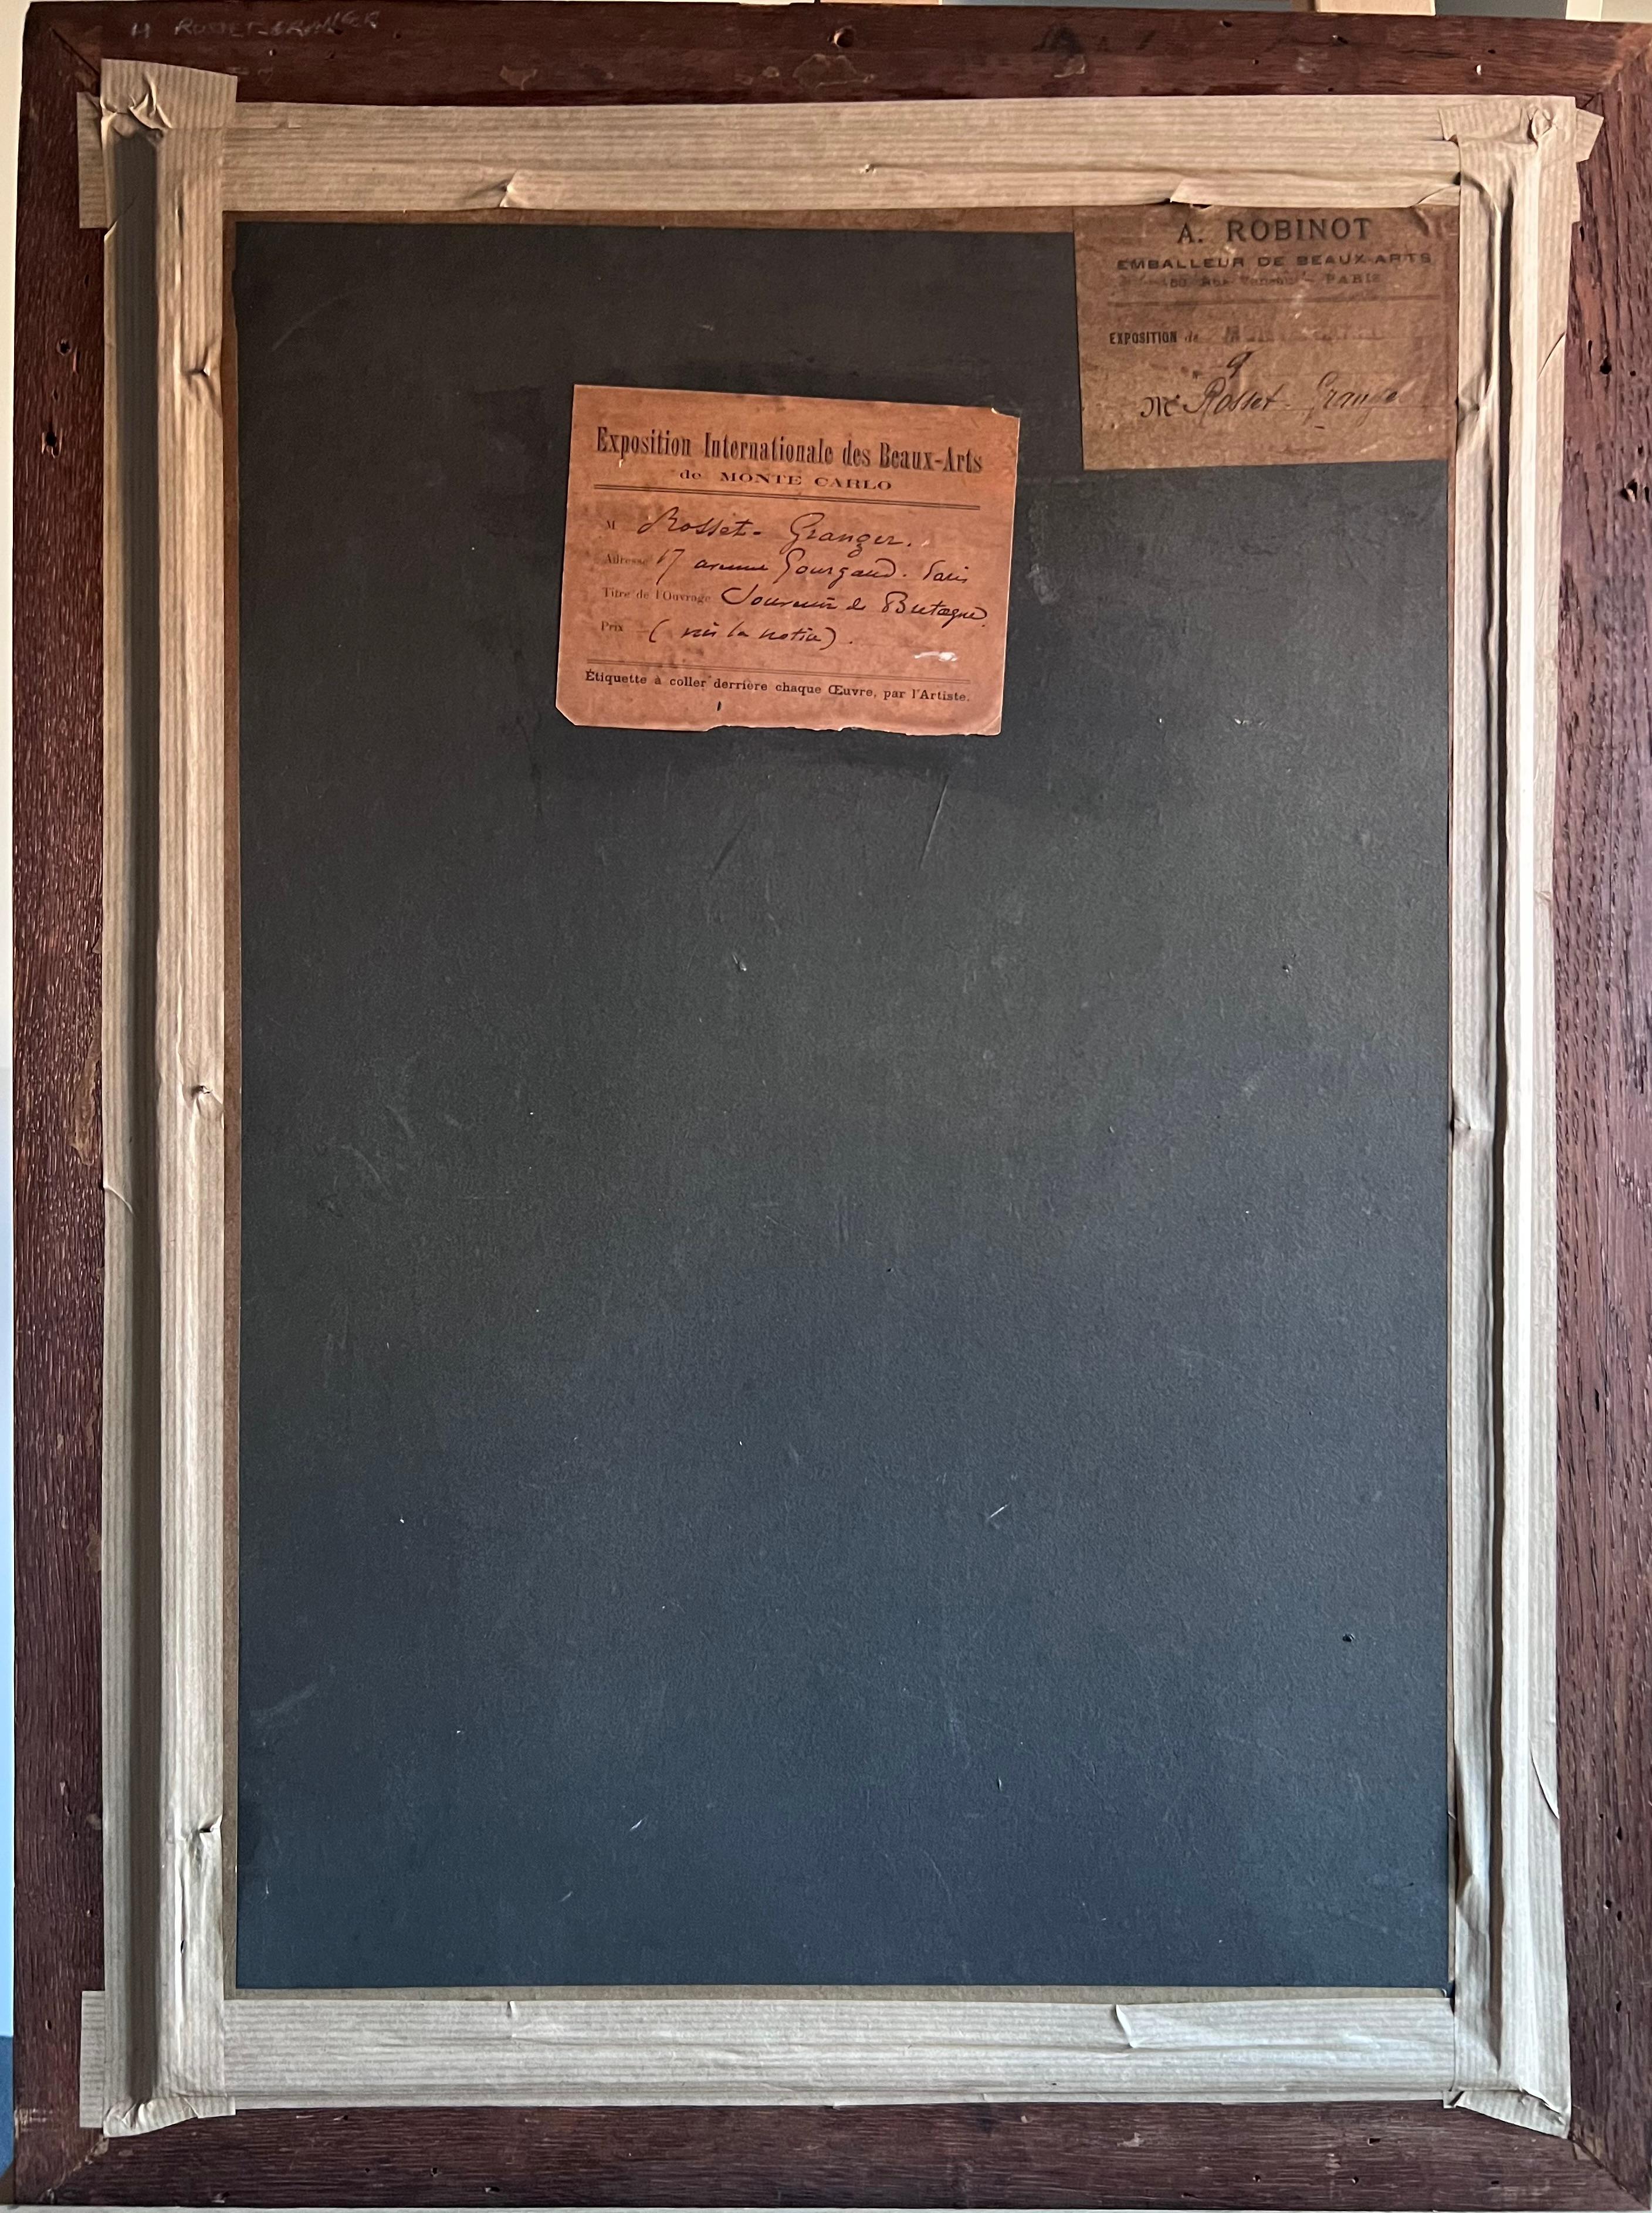 H ROSSET-GRANGER
A. ROBINOT
EMBALLEUR DE BEAUX-ARTS
PARIS
EXPOSITION de
9
Mr Rosset-Granger
Exposition Internationale des Beaux-Arts
de MONTE CARLO
M Rosset-Granger.
Adresse 17 avenue Gourgaud. Paris
Titre de l'Ouvrage Souvenir de Bretagne.
Prix (voir la notice).
Étiquette à coller derrière chaque Œuvre, par l'Artiste.